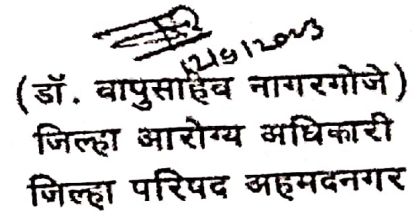 (डॉ. बापुसाहेब नागरगोजे)
जिल्हा आरोग्य अधिकारी
जिल्हा परिषद अहमदनगर